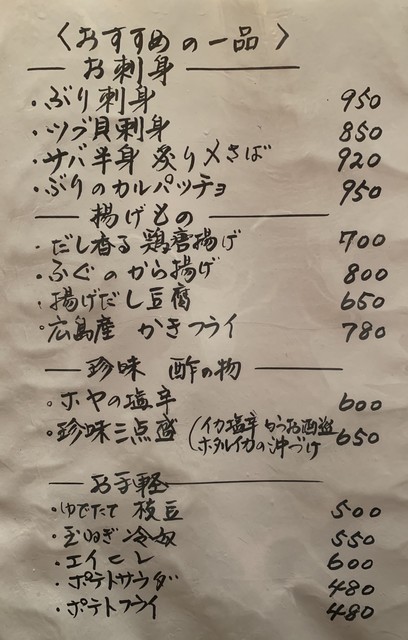 〈おすすめの一品〉
お刺身
・ぶり刺身 950
・ツブ貝刺身 850
・サバ半身 炙り〆さば 920
・ぶりのカルパッチョ 950
揚げもの
・だし香る 鶏唐揚げ 700
・ふぐのから揚げ 800
・揚げだし豆腐 650
・広島産 かきフライ 780
珍味 酢の物
・ホヤの塩辛 600
・珍味三点盛 (イカ塩辛 お酒盗 ホタルイカの沖づけ 650
お手軽
・ゆでたて 枝豆 500
・玉ねぎ冷奴 550
・エイヒレ 600
・ポテトサラダ 480
・ポテトフライ 480